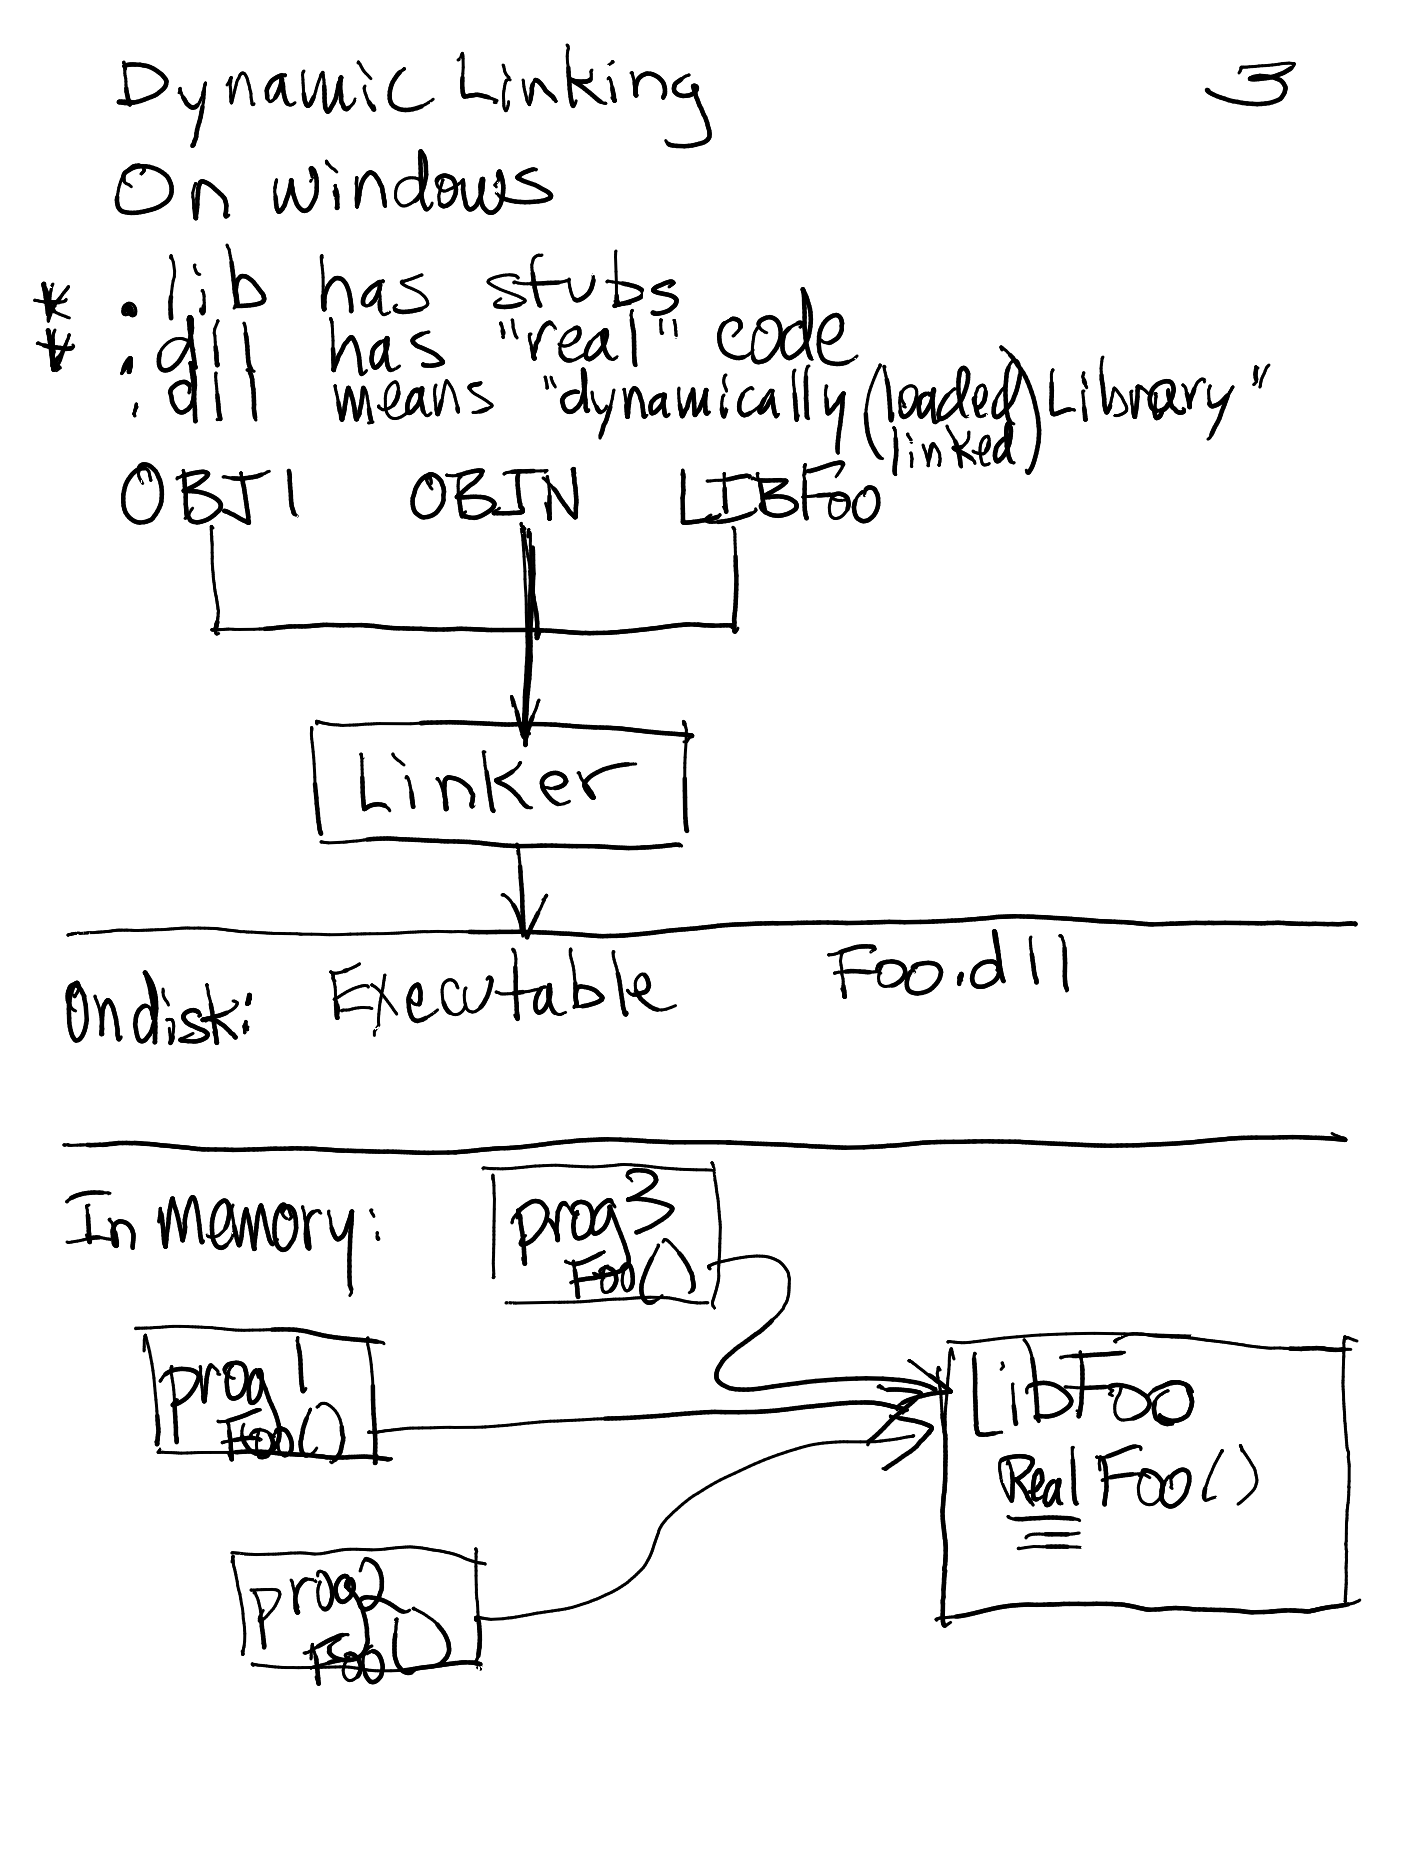 Dynamic Linking 3
On windows
* .lib has stubs
* .dll has "real" code
.dll means "dynamically (loaded) Library"
linked
OBJ1 OBJN LIBFoo
Linker
On disk: Executable Foo.dll
In memory:
prog3
Foo()
prog1
Foo()
LibFoo
Real Foo()
prog2
Foo()